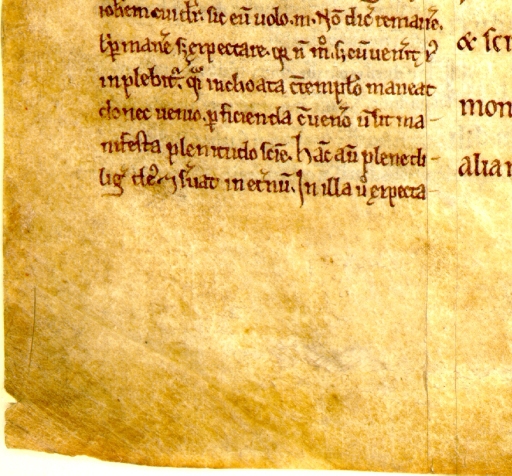 ioħem cui dr̄. sic eū uolo. m̄. Nō dic̄ remane͛.
ł ꝑmane͛ s; expectare. n̄ m̊. s; cū uen͛it
inplebit᷑. inchoata c̄templo maneat
donec uenio. ꝑficienda cū uen͛o ma-
nifesta plenitudo scīe. hāc aū plene di-
lig̅ in et͛nū. In illa u̅o expecta-
& scr
mon
aliar